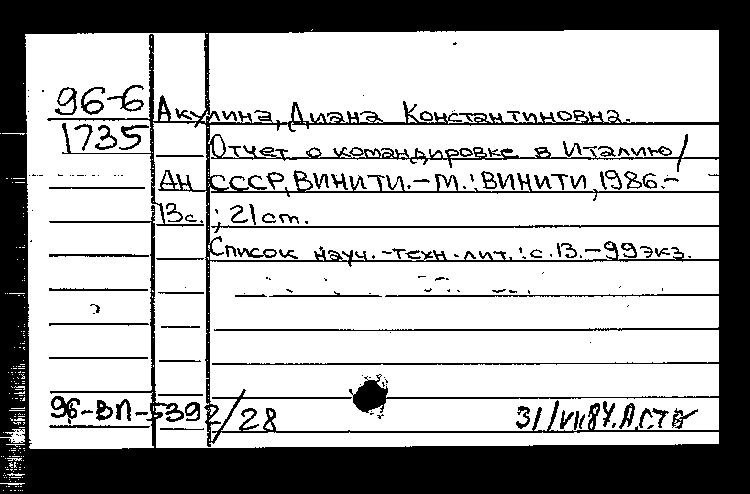 96-6
1735
Акулина, Диана Константиновна.
Отчет о командировке в Италию /
АН СССР, ВИНИТИ. – М. : ВИНИТИ, 1986. –
13с. ; 21 cm.
Список науч.-техн. лит.: с. 13. – 99 экз.
96-ВП-5392/28